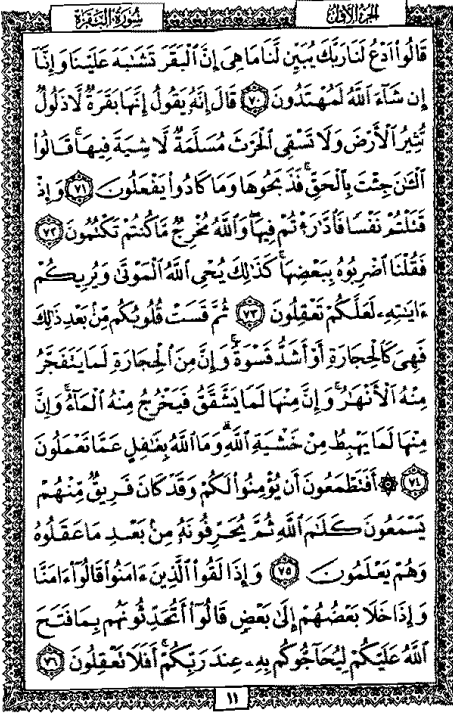 الجزء الأول
سورة البقرة
قَالُوا۟ ٱدْعُ لَنَا رَبَّكَ يُبَيِّن لَّنَا مَا هِىَ إِنَّ ٱلْبَقَرَ تَشَـٰبَهَ عَلَيْنَا وَإِنَّآ
إِن شَآءَ ٱللَّهُ لَمُهْتَدُونَ ٧٠ قَالَ إِنَّهُۥ يَقُولُ إِنَّهَا بَقَرَةٌ لَّا ذَلُولٌ
تُثِيرُ ٱلْأَرْضَ وَلَا تَسْقِى ٱلْحَرْثَ مُسَلَّمَةٌ لَّا شِيَةَ فِيهَا ۚ قَالُوا۟
ٱلْـَٔـٰنَ جِئْتَ بِٱلْحَقِّ ۚ فَذَبَحُوهَا وَمَا كَادُوا۟ يَفْعَلُونَ ٧١ وَإِذْ
قَتَلْتُمْ نَفْسًا فَٱدَّٰرَْٰٔتُمْ فِيهَا ۖ وَٱللَّهُ مُخْرِجٌ مَّا كُنتُمْ تَكْتُمُونَ ٧٢
فَقُلْنَا ٱضْرِبُوهُ بِبَعْضِهَا ۚ كَذَٰلِكَ يُحْىِ ٱللَّهُ ٱلْمَوْتَىٰ وَيُرِيكُمْ
ءَايَـٰتِهِۦ لَعَلَّكُمْ تَعْقِلُونَ ٧٣ ثُمَّ قَسَتْ قُلُوبُكُم مِّنۢ بَعْدِ ذَٰلِكَ
فَهِىَ كَٱلْحِجَارَةِ أَوْ أَشَدُّ قَسْوَةً ۚ وَإِنَّ مِنَ ٱلْحِجَارَةِ لَمَا يَتَفَجَّرُ
مِنْهُ ٱلْأَنْهَـٰرُ ۚ وَإِنَّ مِنْهَا لَمَا يَشَّقَّقُ فَيَخْرُجُ مِنْهُ ٱلْمَآءُ ۚ وَإِنَّ
مِنْهَا لَمَا يَهْبِطُ مِنْ خَشْيَةِ ٱللَّهِ ۗ وَمَا ٱللَّهُ بِغَـٰفِلٍ عَمَّا تَعْمَلُونَ
٧٤ ۞ أَفَتَطْمَعُونَ أَن يُؤْمِنُوا۟ لَكُمْ وَقَدْ كَانَ فَرِيقٌ مِّنْهُمْ
يَسْمَعُونَ كَلَـٰمَ ٱللَّهِ ثُمَّ يُحَرِّفُونَهُۥ مِنۢ بَعْدِ مَا عَقَلُوهُ
وَهُمْ يَعْلَمُونَ ٧٥ وَإِذَا لَقُوا۟ ٱلَّذِينَ ءَامَنُوا۟ قَالُوٓا۟ ءَامَنَّا
وَإِذَا خَلَا بَعْضُهُمْ إِلَىٰ بَعْضٍ قَالُوٓا۟ أَتُحَدِّثُونَهُم بِمَا فَتَحَ
ٱللَّهُ عَلَيْكُمْ لِيُحَآجُّوكُم بِهِۦ عِندَ رَبِّكُمْ ۚ أَفَلَا تَعْقِلُونَ ٧٦
١١